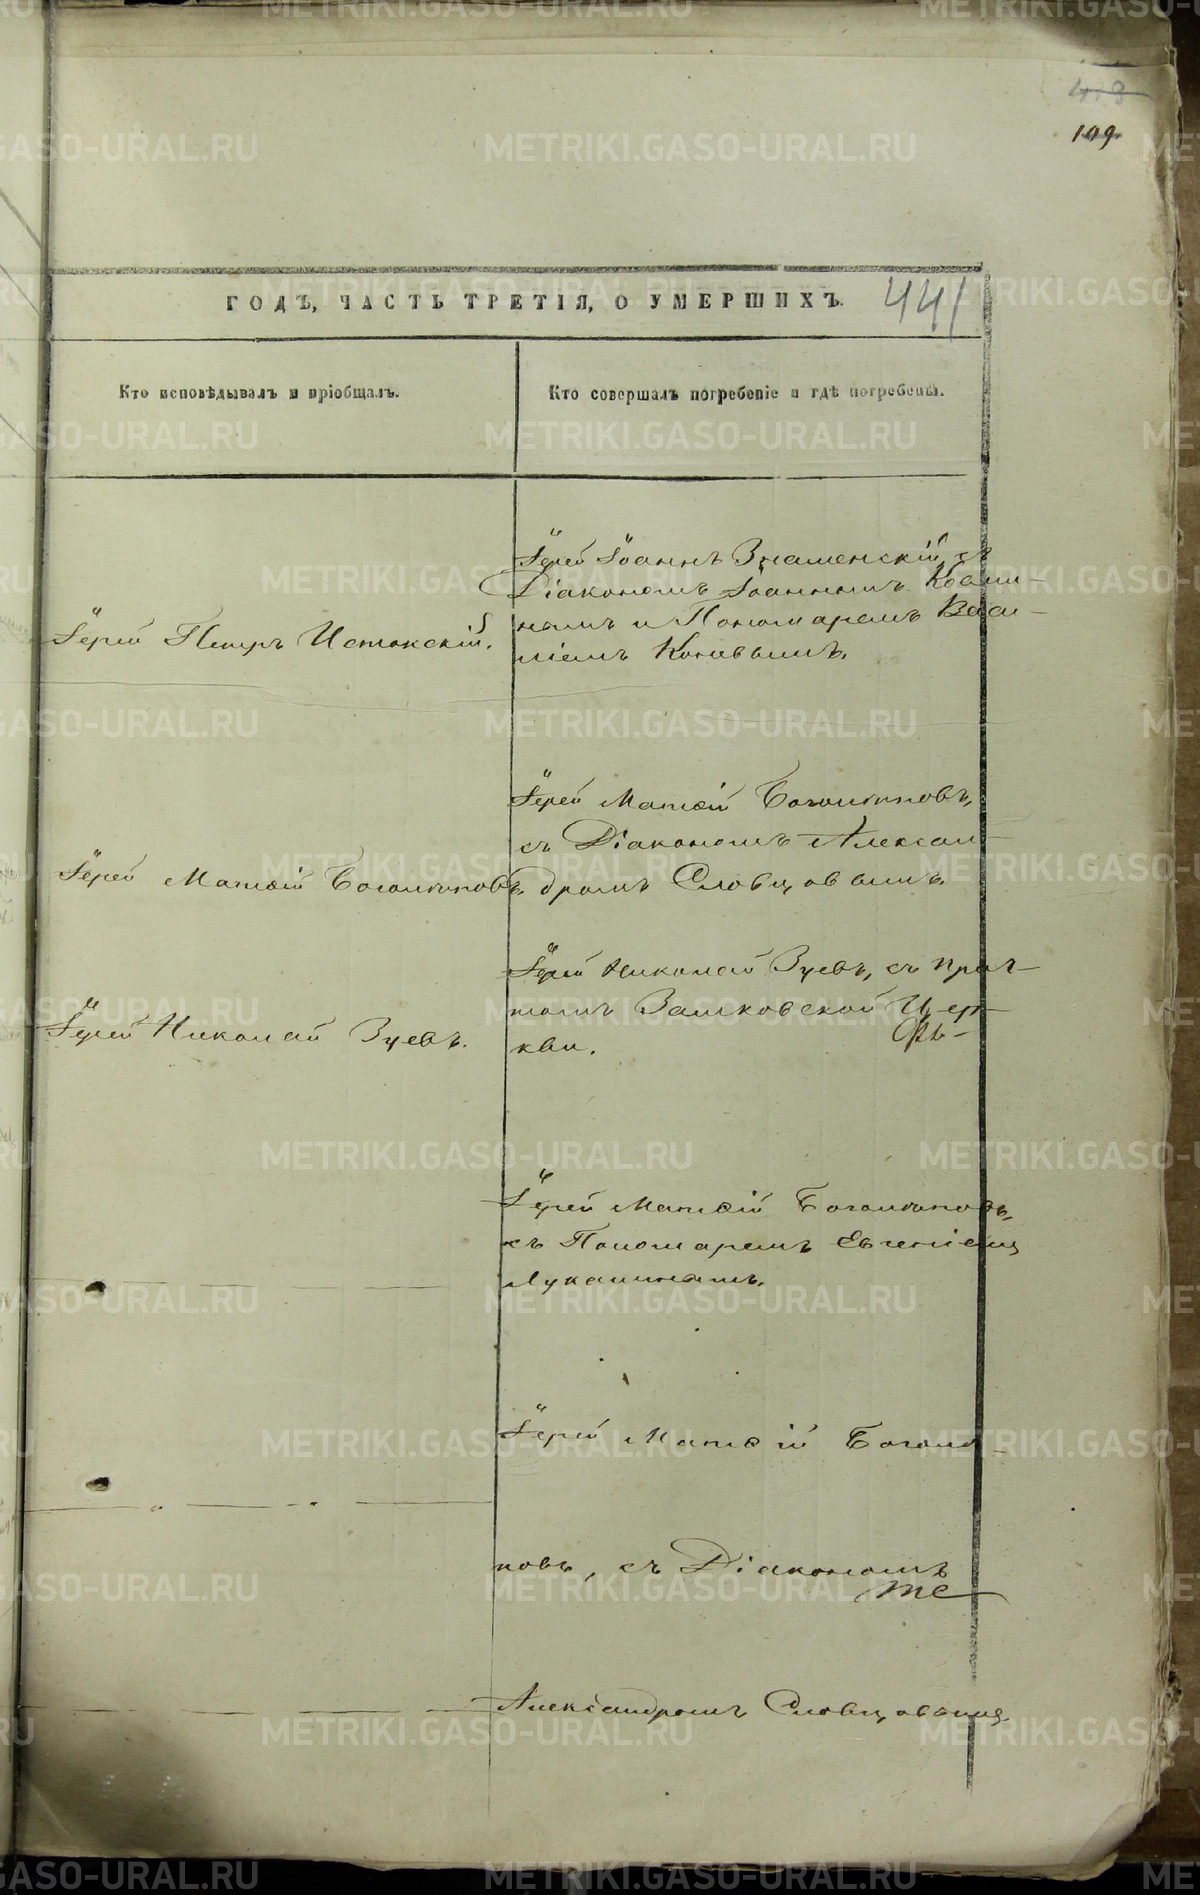 109.
ГОДЪ, ЧАСТЬ ТРЕТІЯ, О УМЕРШИХЪ. 441
Кто исповѣдывалъ и пріобщалъ.
Кто совершалъ погребеніе и гдѣ погребены.
Іерей Петръ Истокскій.
Іерей Іоаннъ Знаменскій, съ
Діакономъ Іоанномъ
номъ и Пономаремъ Васи-
ліемъ
Іерей Матѳій Боголюповъ.
Іерей Матѳій Боголюповъ,
съ Діакономъ Алексан-
дромъ Словцовымъ.
Іерей Николай Зуевъ.
Іерей Николай Зуевъ, съ прич-
томъ Замковской Цер-
кви.
Іерей Матѳій Боголюповъ,
съ Пономаремъ Евгеніемъ
Лукашинымъ.
Іерей Матѳій Боголю-
повъ, съ Діакономъ
Александромъ Словцовымъ.
METRIKI.GASO-URAL.RU